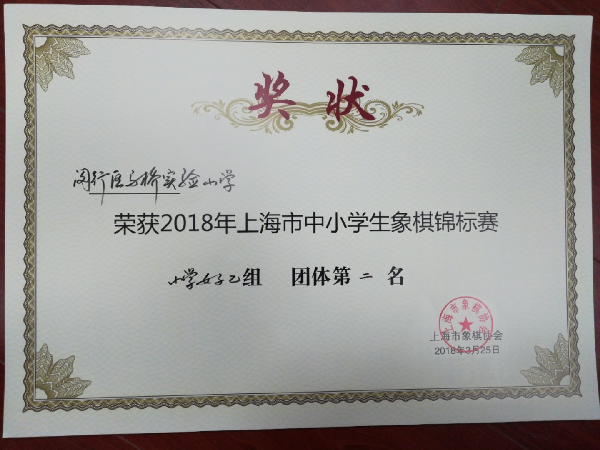 奖状
闵行区马桥实验小学
荣获2018年上海市中小学生象棋锦标赛
小学女子乙组 团体第二名
上海市象棋协会
上海市象棋协会
2018年3月25日